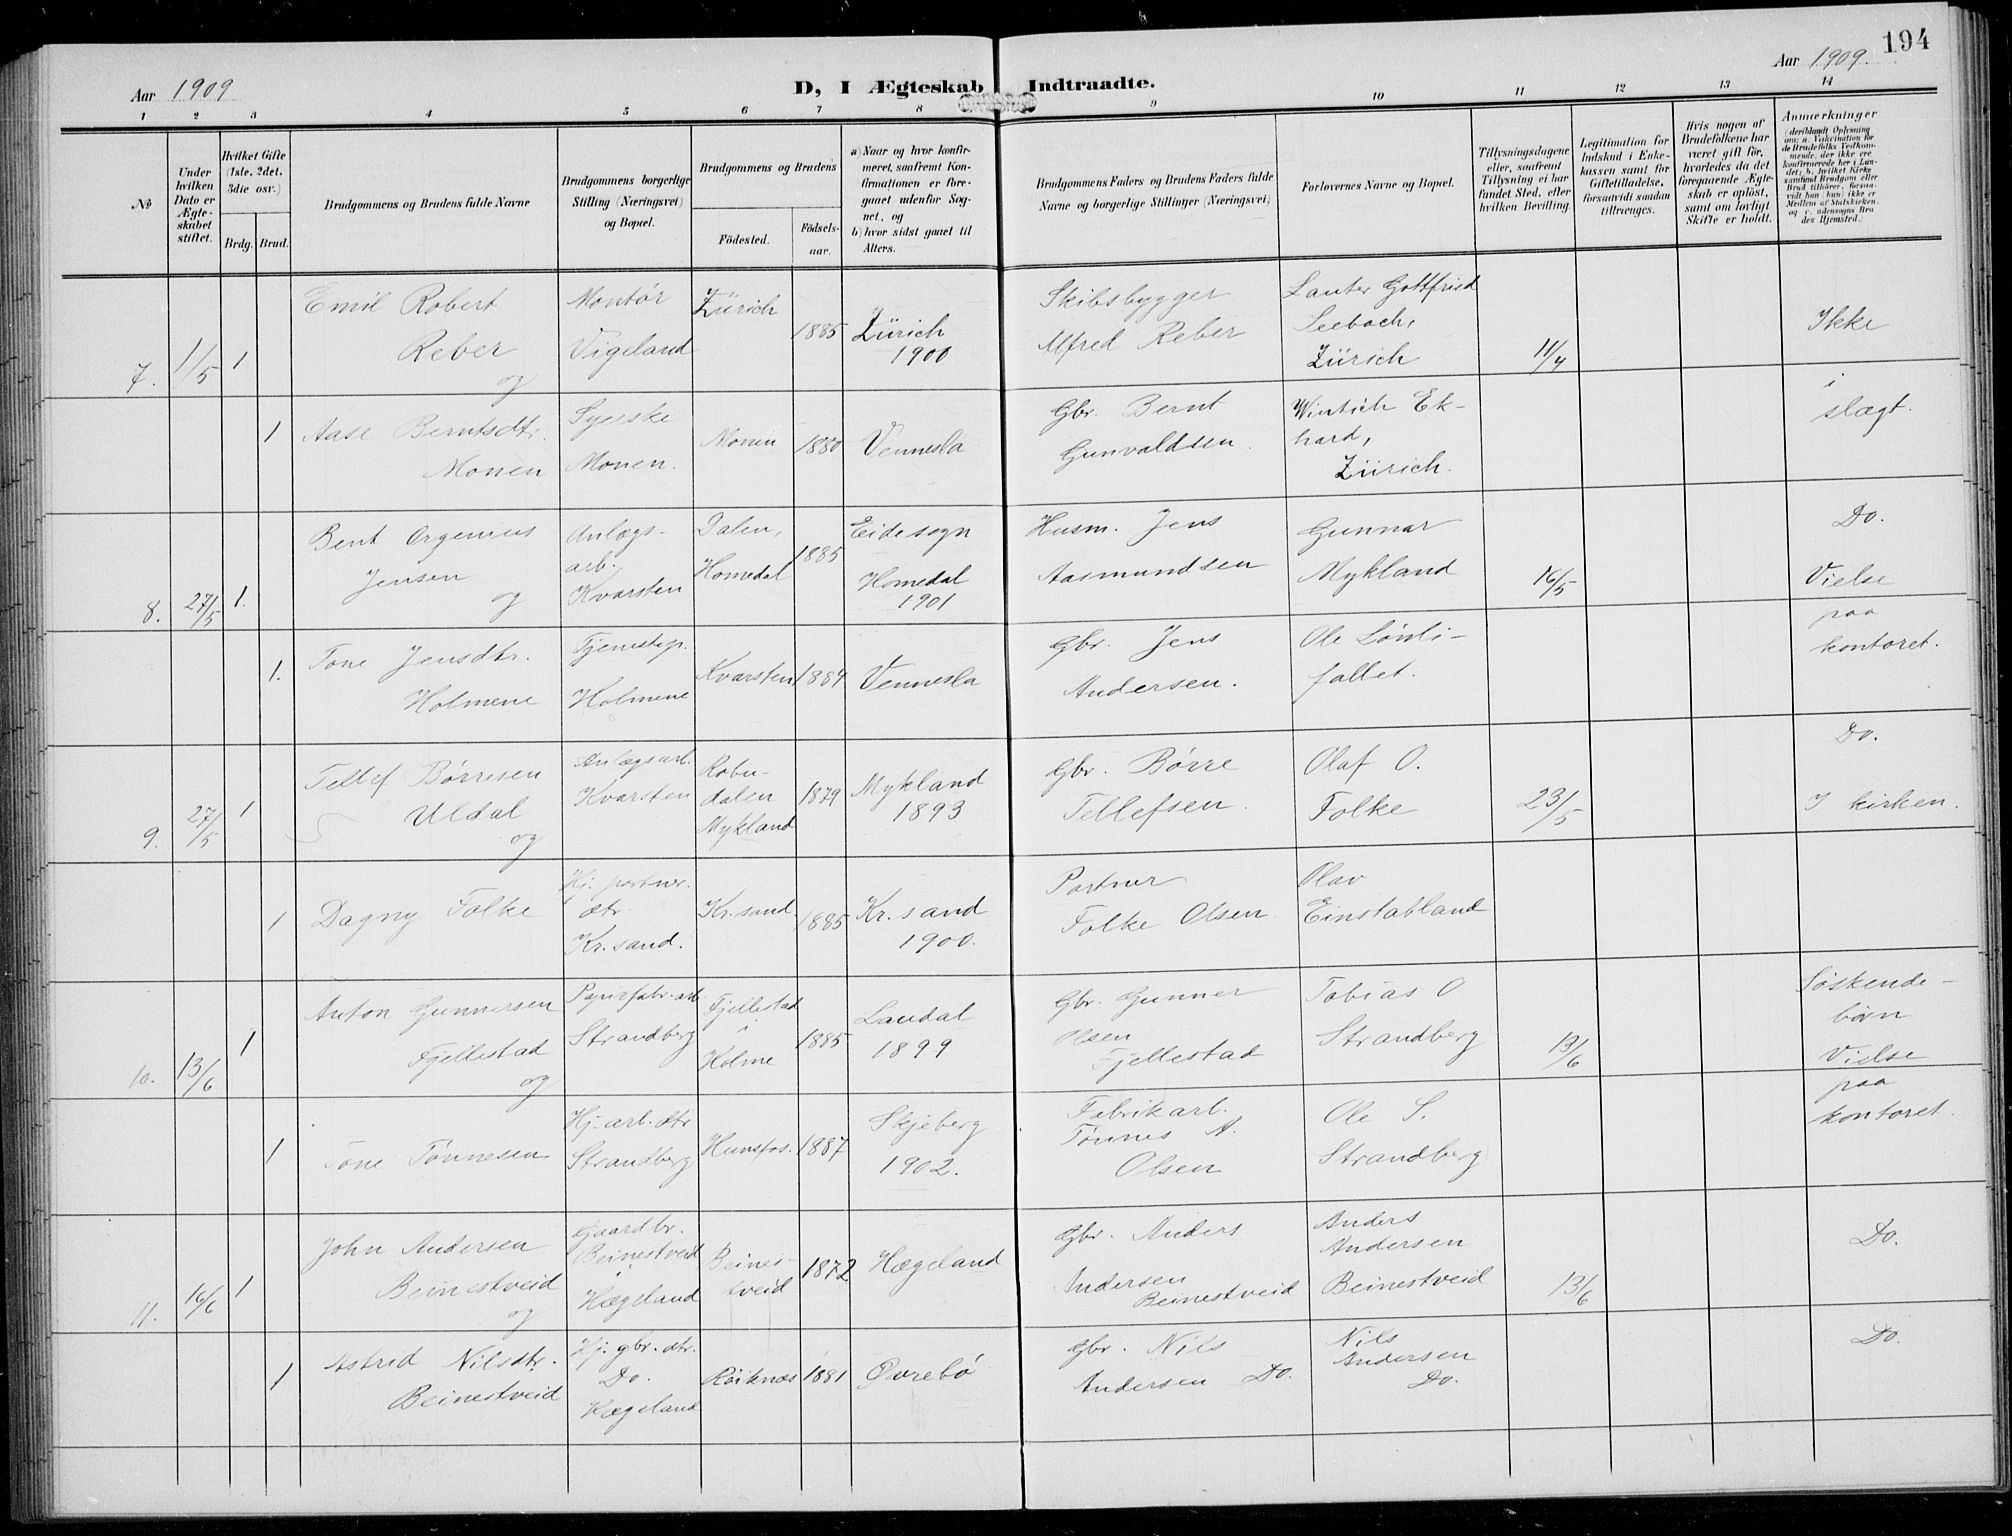 194
Aar 1909
D, I Ægteskab Indtraadte.
Aar 1909.
1 2 3 4 5 6 7 8 9 10 11 12 13 14
No
Under hvilken Dato er Ægteskabet stiftet.
Hvilket Gifte (1ste, 2det, 3die osv.)
Brdg. Brud.
Brudgommens og Brudens fulde Navne
Brudgommens borgerlige Stilling (Næringsvei) og Bopæl.
Brudgommens og Brudens
Födested.
Födselsaar.
a) Naar og hvor konfirmeret, saafremt Konfirmationen er foregaaet udenfor Sognet, og
b) hvor sidst gaaet til Alters.
Brudgommens Faders og Brudens Faders fulde Navne og borgerlige Stillinger (Næringsvei)
Forlovernes Navne og Bopæl.
Tillysningsdagene eller, saafremt Tillysning ei har fundet Sted, efter hvilken Bevilling.
Legitimation for Indskud i Enkekassen samt for Giftetilladelse, forsaavidt saadan tiltrænges.
Hvis nogen af Brudefolkene har været gift för, hvorledes da det foregaaende Ægteskab er oplöst, samt om lovligt Skifte er holdt.
Anmerkninger
(deriblandt Oplysning om: a. Vakcination for de Brudefolks Vedkommende, der ikke ere konfirmerede her i Landet; b. hvilket Kirkesamfund Brudgom eller Brud tilhörer, forsaavidt han (hun) ikke er Medlem af Statskirken, og c. udensogns Brudes Hjemsted.)
7. 1/5 1
Emil Robert
Reber
og
Montør
Vigeland
Zürich
1885
Zürich
1900
Skibsbygger
Alfred Reber
Lauter Gottfried
Seebach,
Zürich
11/4
Ikke
i
slægt.
1
Aase Berntsdtr.
Monen
Syerske
Monen.
Monen
1880
Vennesla
Gbr. Bernt
Gunvaldsen.
Wintsch Ek-
hard,
Zürich.
8. 27/5 1.
Bent Orgenius
Jensen
og
Anlægs-
arb.
Kvarsten
Dalen,
Homedal
1885
Eide sogn
Homedal
1901
Husm. Jens
Aasmundsen
Gunnar
Mykland
16/5
Do.
Vielse
paa
kontoret.
1.
Tone Jensdtr.
Holmene
Tjenestep.
Holmene
Kvarsten
1884
Vennesla
Gbr. Jens
Andersen.
Ole Lønli-
fallet.
9. 27/5 1
Tellef Børresen
Uldal
og
Anlægsarb.
Kvarsten
Robu-
dalen
Mykland
1879
Mykland
1893
Gbr. Børre
Tellefsen.
Olaf O.
Folke
23/5
Do.
I kirken.
1
Dagny Folke
Hj. portner.
dtr.
Kr.sand.
Kr.sand.
1885
Kr.sand
1900.
Portner
Folke Olsen
Olav
Einstabland
10. 13/6 1
Anton Gunnersen
Fjellestad
og
Papirfabr.arb.
Strandberg
Fjellestad
i
Holme
1885
Laudal
1899
Gbr. Gunner
Olsen
Fjellestad
Tobias O
Strandberg
13/6
Søskende-
børn
Vielse
paa
kontoret.
1
Tone Tønnesen
Hj. arb. dtr
Strandberg
Hunsfos.
1887
Skjeberg
1902.
Fabrikarb.
Tønnes A.
Olsen
Ole S.
Strandberg
11. 16/6 1
John Andersen
Beinestveid
og
Gaardbr.
Beinestveid
i
Hægeland
Beines-
tveid
1872
Hægeland
Gbr. Anders
Andersen
Beinestveid
Anders
Andersen
Beinestveid
13/6
Do.
1
Astrid Nilsdtr.
Beinestveid
Hj. gbr. dtr.
Do.
Hægeland
Röiknæs
1881
Øvrebö
Gbr. Nils
Andersen Do.
Nils
Andersen
Do.
Do.